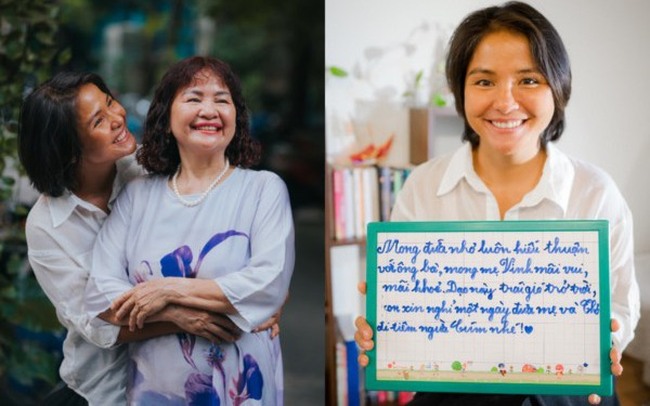 Mong đứa nhỏ luôn hiếu thuận
với ông bà, mong mẹ Vinh mãi vui,
mãi khoẻ. Dạo này trái gió trở trời,
con xin nghỉ một ngày đưa mẹ và Thỏ
đi tiêm ngừa Cúm nhé!